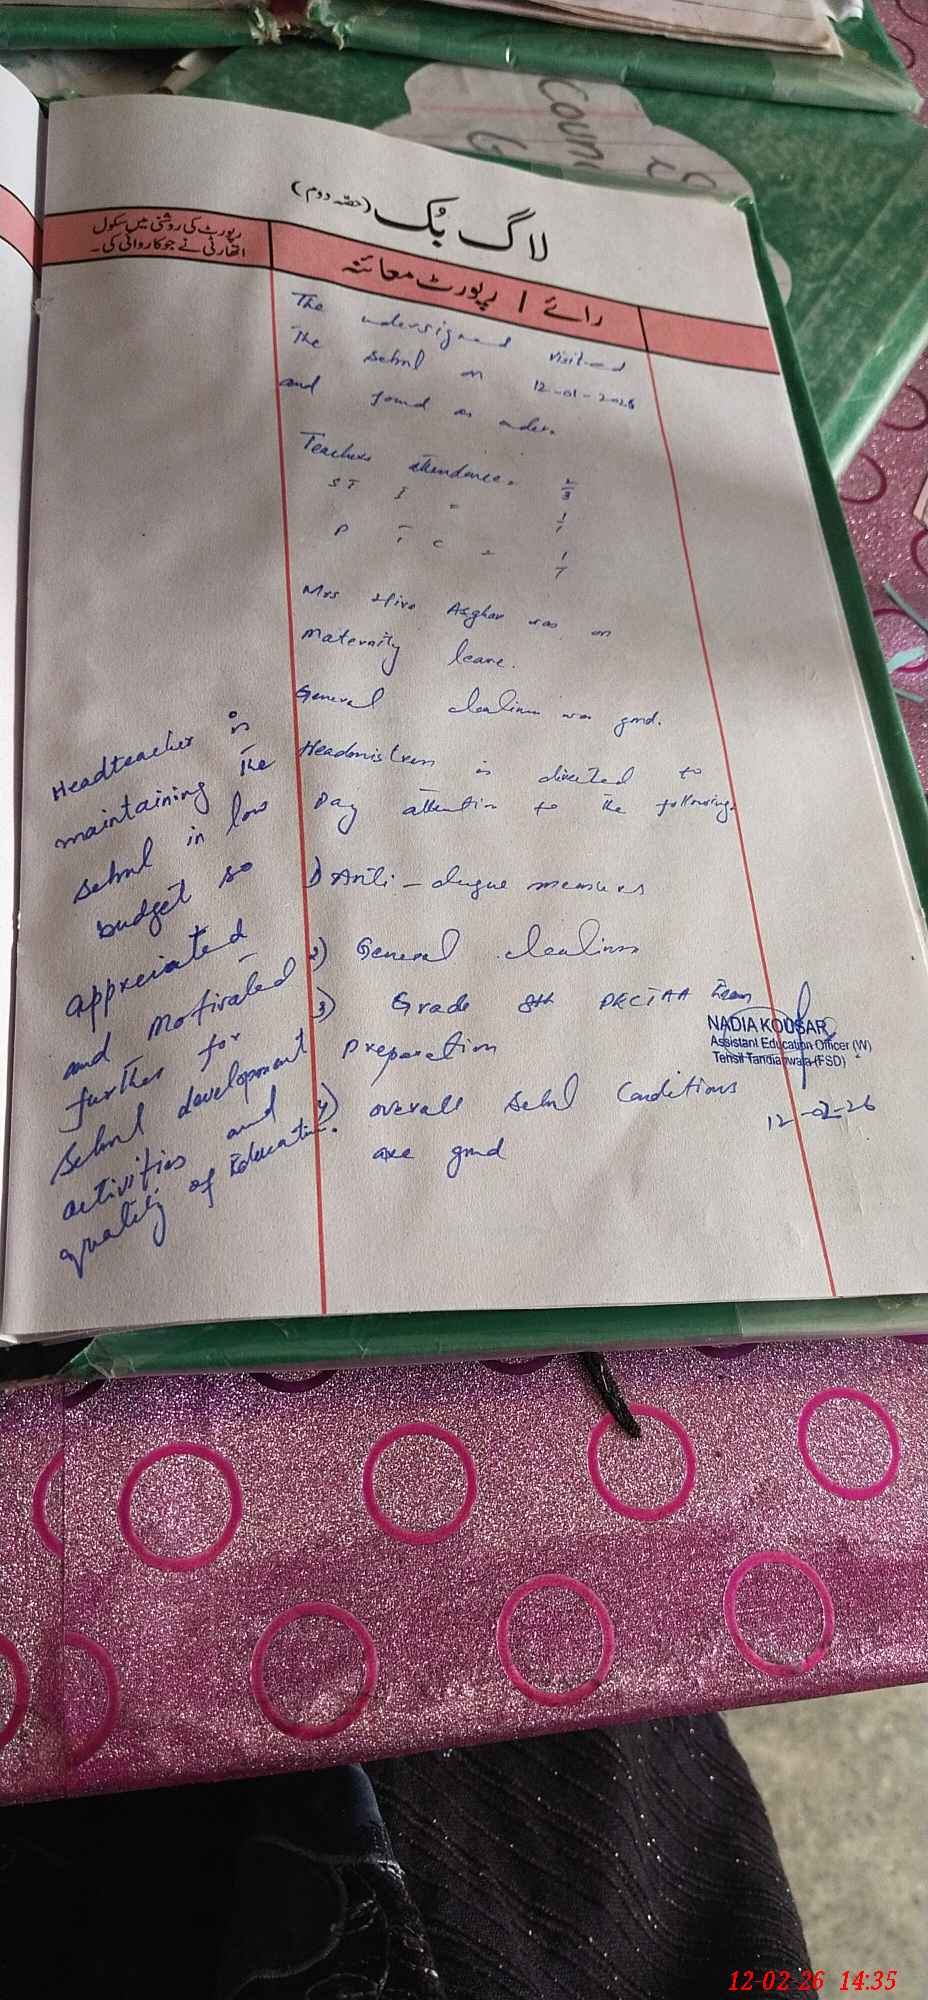 Coun
لاگ بُک (حصّہ دوم)
رپورٹ کی روشنی میں سکول
اتھارٹی نے جو کاروائی کی۔
رائے / رپورٹ معائنہ
The undersigned visited
the school on 12-01-2026
and found as under.
Teachers attendance = 2/3
S T I = 1/1
P T C = 1/1
Mrs Asghar was on
maternity leave.
General cleanliness was good.
Headmistress is directed to
pay attention to the following.
1) Anti-dengue measures
2) General cleanliness
3) Grade 8th PECTAA Exam
preparation
4) overall school conditions
are good
Headteacher is
maintaining the
school in low
budget so
appreciated
and motivated
further for
school development
activities and
quality of Education.
NADIA KOUSAR
Assistant Education Officer (W)
Tehsil Tandlianwala (FSD)
12-02-26
12-02-26 14:35